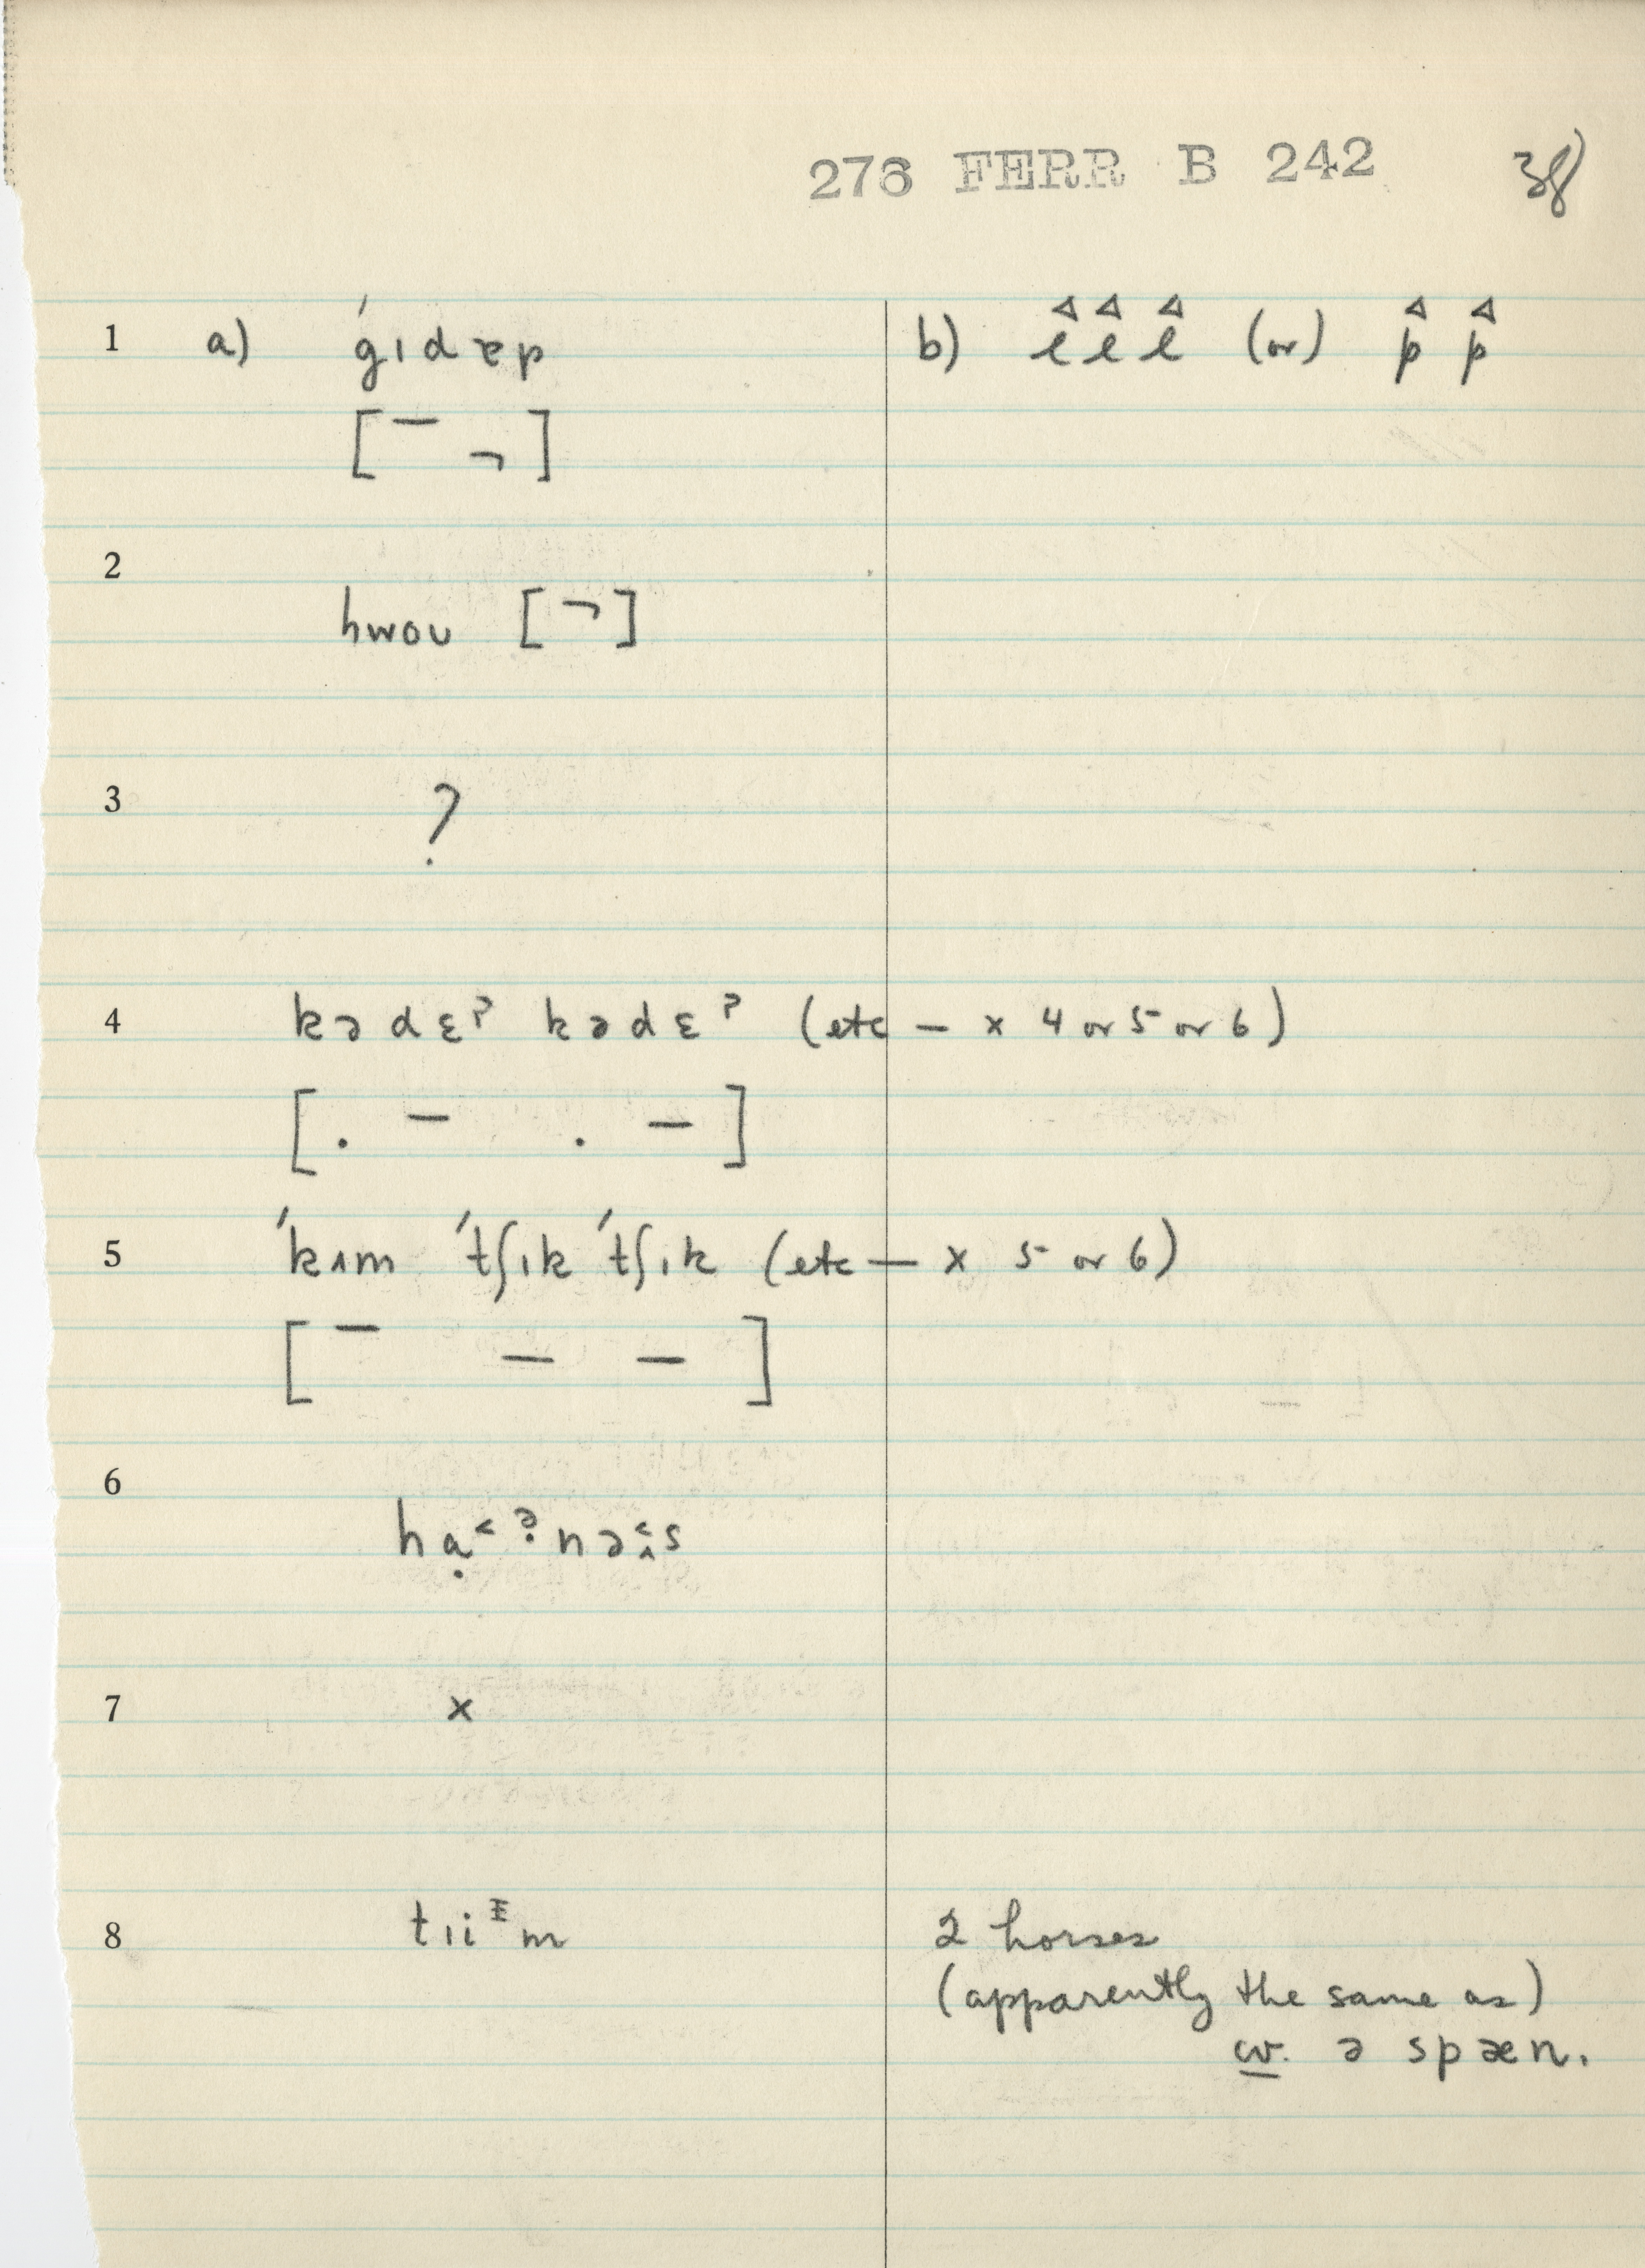 276 FERR B 242 38
1 a) ˈgɪdæp b) l l l (or) p p
[¯ ¬]
2
hwoʊ [¬]
3 ?
4 kədɛˀ kədɛˀ (etc — x 4 or 5 or 6)
[. – . –]
5 ˈkʌm ˈtʃɪk ˈtʃɪk (etc — x 5 or 6)
[¯ – –]
6
7 x
8 2 horses
(apparently the same as)
cv. ə spæn.